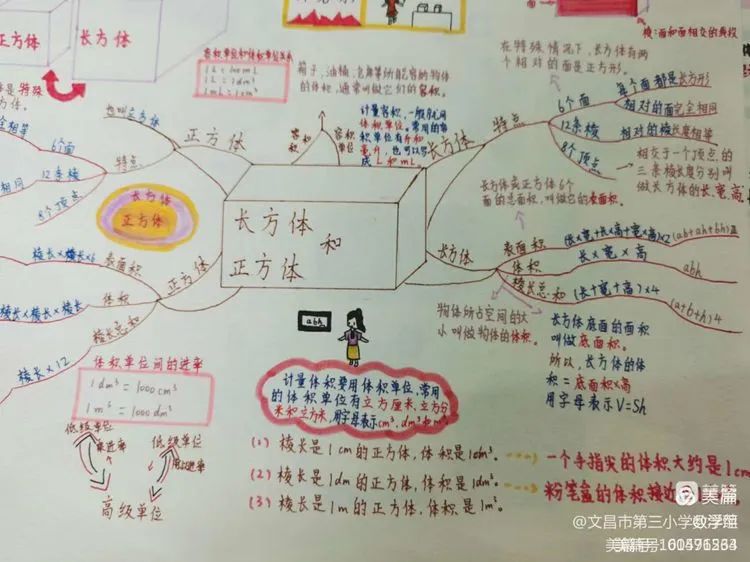 正方体
长方体
棱:面和面相交的线段
容积单位和体积单位关系
1L=1000mL
1L=1dm³
1mL=1cm³
箱子,油桶,仓库等所能容纳物体
的体积,通常叫做它们的容积。
在特殊情况下,长方体有两
个相对的面是正方形。
也叫立方体
正方体
特点
6个面
12条棱
8个顶点
长方体
正方体
容和积
容积单位
计量容积,一般就用
体积单位。常用的容
积单位有升和
毫升,也可以写
成L和mL。
长方体
特点
6个面
每个面都是长方形
相对的面完全相同
12条棱
相对的棱长度相等
8个顶点
相交于一个顶点的
三条棱长度分别叫
做长方体的长、宽、高
长方体或正方体6个
面的总面积,叫做它的表面积。
长方体
和
正方体
长方体
表面积
(长×宽+长×高+宽×高)×2
(ab+ah+bh)2
体积
长×宽×高
abh
棱长总和
(长+宽+高)×4
(a+b+h)4
正方体
表面积
棱长×棱长×6
体积
棱长×棱长×棱长
棱长总和
棱长×12
物体所占空间的大
小叫做物体的体积。
长方体底面的面积
叫做底面积。
所以,长方体的体
积=底面积×高
用字母表示V=Sh
abh
体积单位间的进率
1dm³=1000cm³
1m³=1000dm³
低级单位
乘进率
低级单位
高级单位
计量体积要用体积单位,常用
的体积单位有立方厘米、立方分
米和立方米,用字母表示cm³、dm³和m³。
(1)棱长是1cm的正方体,体积是1cm³。
一个手指尖的体积大约是1cm
(2)棱长是1dm的正方体,体积是1dm³。
粉笔盒的体积接近
(3)棱长是1m的正方体,体积是1m³。
美篇
@文昌市第三小学
美篇号: